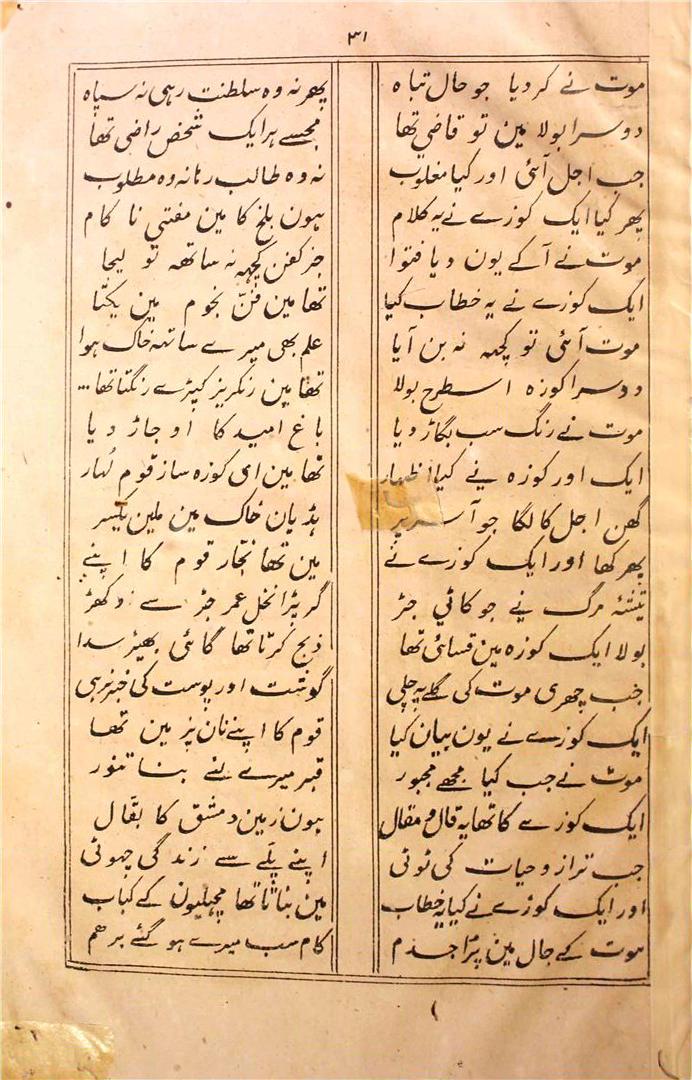 ۳۱
موت نے کر دیا جو حال تباہ
پھر نہ وہ سلطنت رہی نہ سپاہ
دوسرا بولا مین تو قاضی تھا
مجھسے ہر ایک شخص راضی تھا
جب اجل آئی اور کیا مغلوب
نہ وہ طالب رہا نہ وہ مطلوب
پھر کیا ایک کوزے نے یہ کلام
ہون بلخ کا مین مفتی نا کام
موت نے آکے یون دیا فتوا
جز کفن کچھہ نہ ساتھہ تو لیجا
ایک کوزے نے یہ خطاب کیا
تھا مین فنّ نجوم مین یکتا
موت آئی تو کچھہ نہ بن آیا
علم بھی میرے ساتھہ خاک ہوا
دوسرا کوزہ اسطرح بولا
تھا مین رنگریز کپڑے رنگتا تھا...
موت نے رنگ سب بگاڑ دیا
باغ امید کا اوجاڑ دیا
ایک اور کوزہ نے کیا اظہار
تھا مین ای کوزہ ساز قوم لُہار
گھن اجل کا لگا جو آ سر پر
ہڈیان خاک مین ملین یکسر
پھر کھا اور ایک کوزے نے
مین تھا نجّار قوم کا اپنے
تیشۂ مرگ نے جو کاٹی جڑ
گر پڑا نخل عمر جڑ سے اوکھڑ
بولا ایک کوزہ مین قسائی تھا
ذبح کرتا تھا گائی بھیڑ سدا
جب چھری موت کی گلے پہ چلی
گوشت اور پوست کی خبر نرہی
ایک کوزے نے یون بیان کیا
قوم کا اپنے نان پز مین تھا
موت نے جب کیا مجھے مجبور
قبر میرے لئے بنا تنور
ایک کوزے کا تھا یہ قال و مقال
ہون زمین دمشق کا بقّال
جب ترازو حیات کی ٹوٹی
اپنے پلّے سے زندگی چھوٹی
اور ایک کوزے نے کیا یہ خطاب
مین بناتا تھا مچھلیون کے کباب
موت کے جال مین پڑا جسدم
کام سب میرے ہو گئے برھم